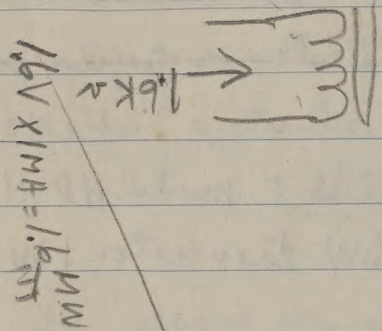 1.6KΩ
1.6V X 1MA = 1.6 MW